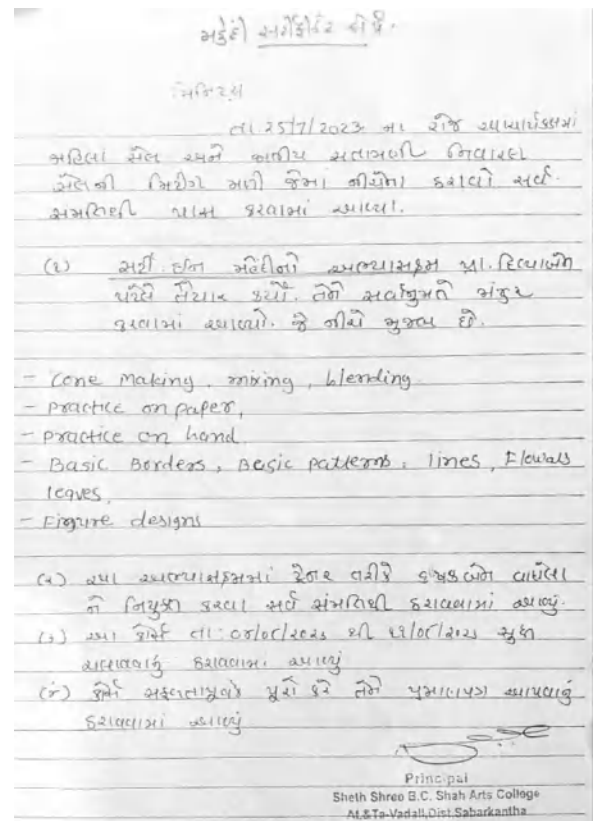 મહેંદી સર્ટીફીકેટ કોર્ષ.
મિનિટ્સ
તા. 25/7/2023 ના રોજ આચાર્યકક્ષમાં
મહિલા સેલ અને જાતીય સતામણી નિવારણ
સેલની મિટીંગ મળી જેમાં નીચેના ઠરાવો સર્વ
સમતિથી પાસ કરવામાં આવ્યા.
(૧) સર્ટી. ઈન મહેંદીનો અભ્યાસક્રમ પ્રા. દિવ્યાબેન
પટેલે તૈયાર કર્યો. તેને સર્વાનુમતે મંજુર
કરવામાં આવ્યો. જે નીચે મુજબ છે.
- Cone Making, mixing, blending.
- Practice on paper,
- Practice on hand
- Basic Borders, Basic patterns, lines, Flowals
leaves,
- Figure designs
(૨) આ અભ્યાસક્રમમાં ટ્રેનર તરીકે વાઘેલા
ને નિયુક્ત કરવા સર્વ સંમતિથી ઠરાવવામાં આવ્યું.
(૩) આ કોર્સ તા: થી સુધી
ચલાવવાનું ઠરાવવામાં આવ્યું
(૪) કોર્સ સફલતાપૂર્વક પૂરો કરે તેને પ્રમાણપત્ર આપવાનું
ઠરાવવામાં આવ્યું
Principal
Sheth Shree B.C. Shah Arts College
At.&Ta-Vadali,Dist.Sabarkantha